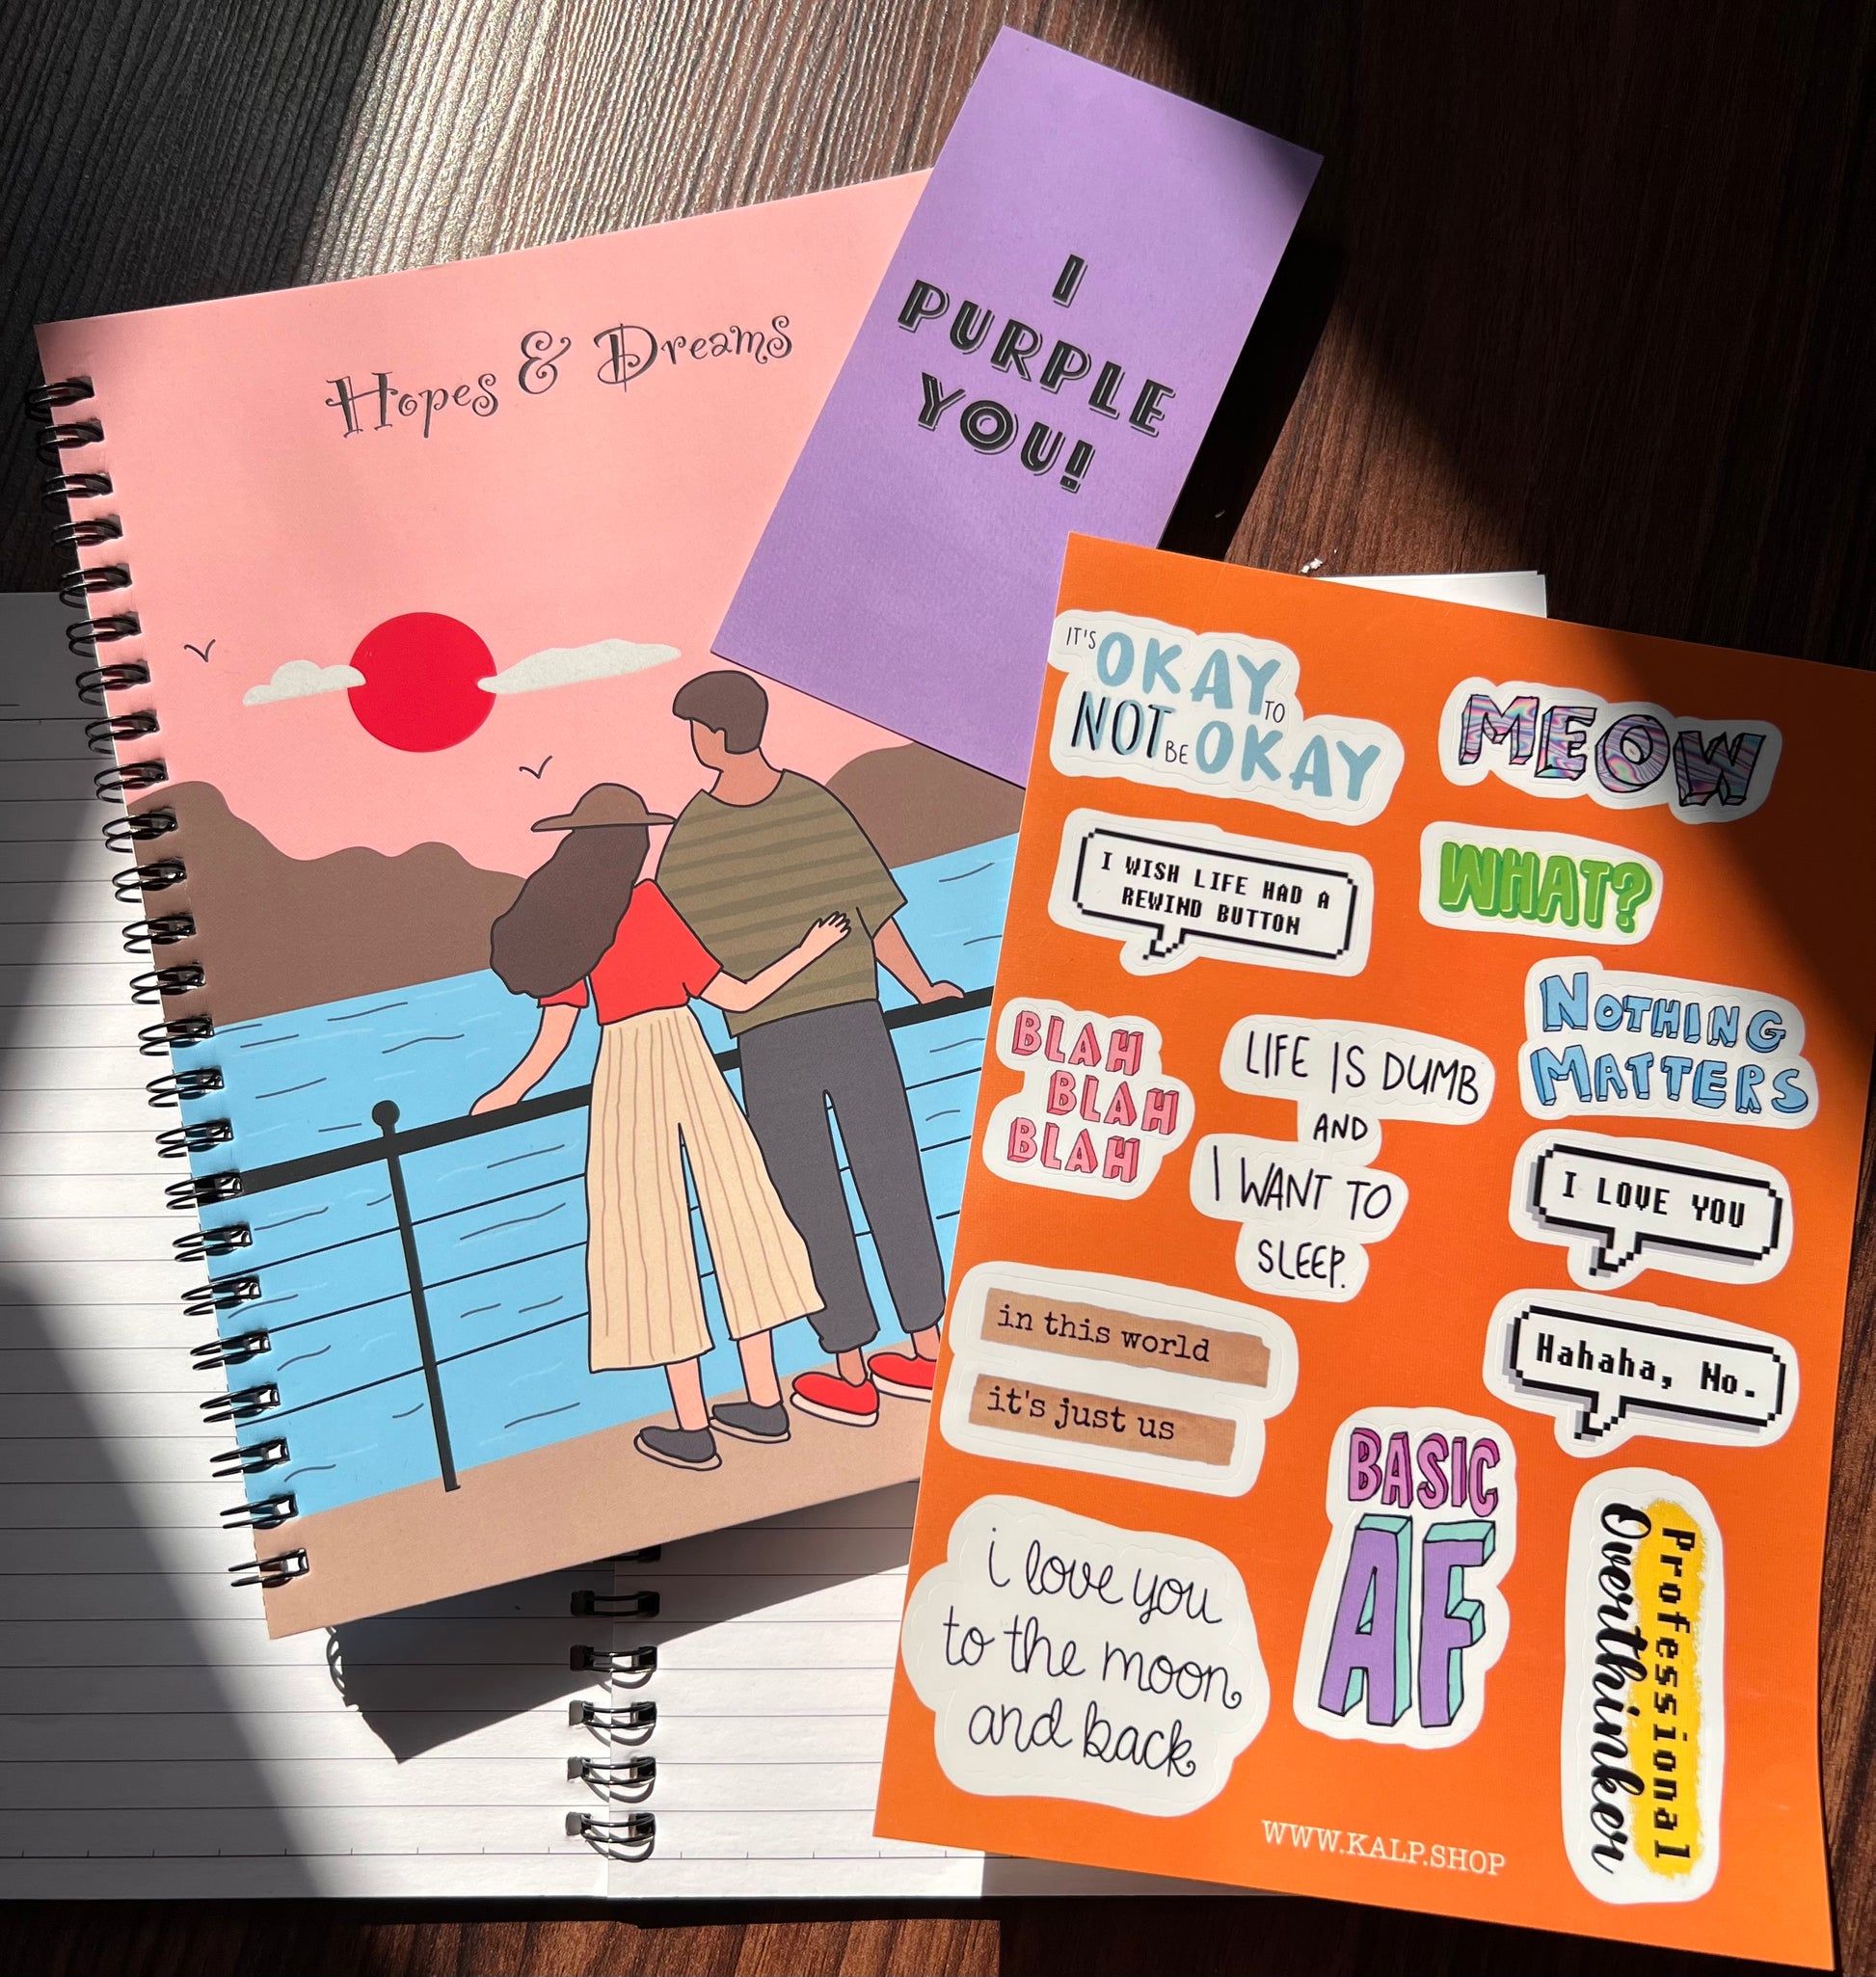 Hopes & Dreams
I
PURPLE
YOU!
IT'S OKAY TO
NOT BE OKAY
MEOW
I WISH LIFE HAD A
REWIND BUTTON
WHAT?
BLAH
BLAH
BLAH
LIFE IS DUMB
AND
I WANT TO
SLEEP.
NOTHING
MATTERS
I LOVE YOU
in this world
it's just us
Hahaha, No.
i love you
to the moon
and back
BASIC
AF
Professional
Overthinker
WWW.KALP.SHOP